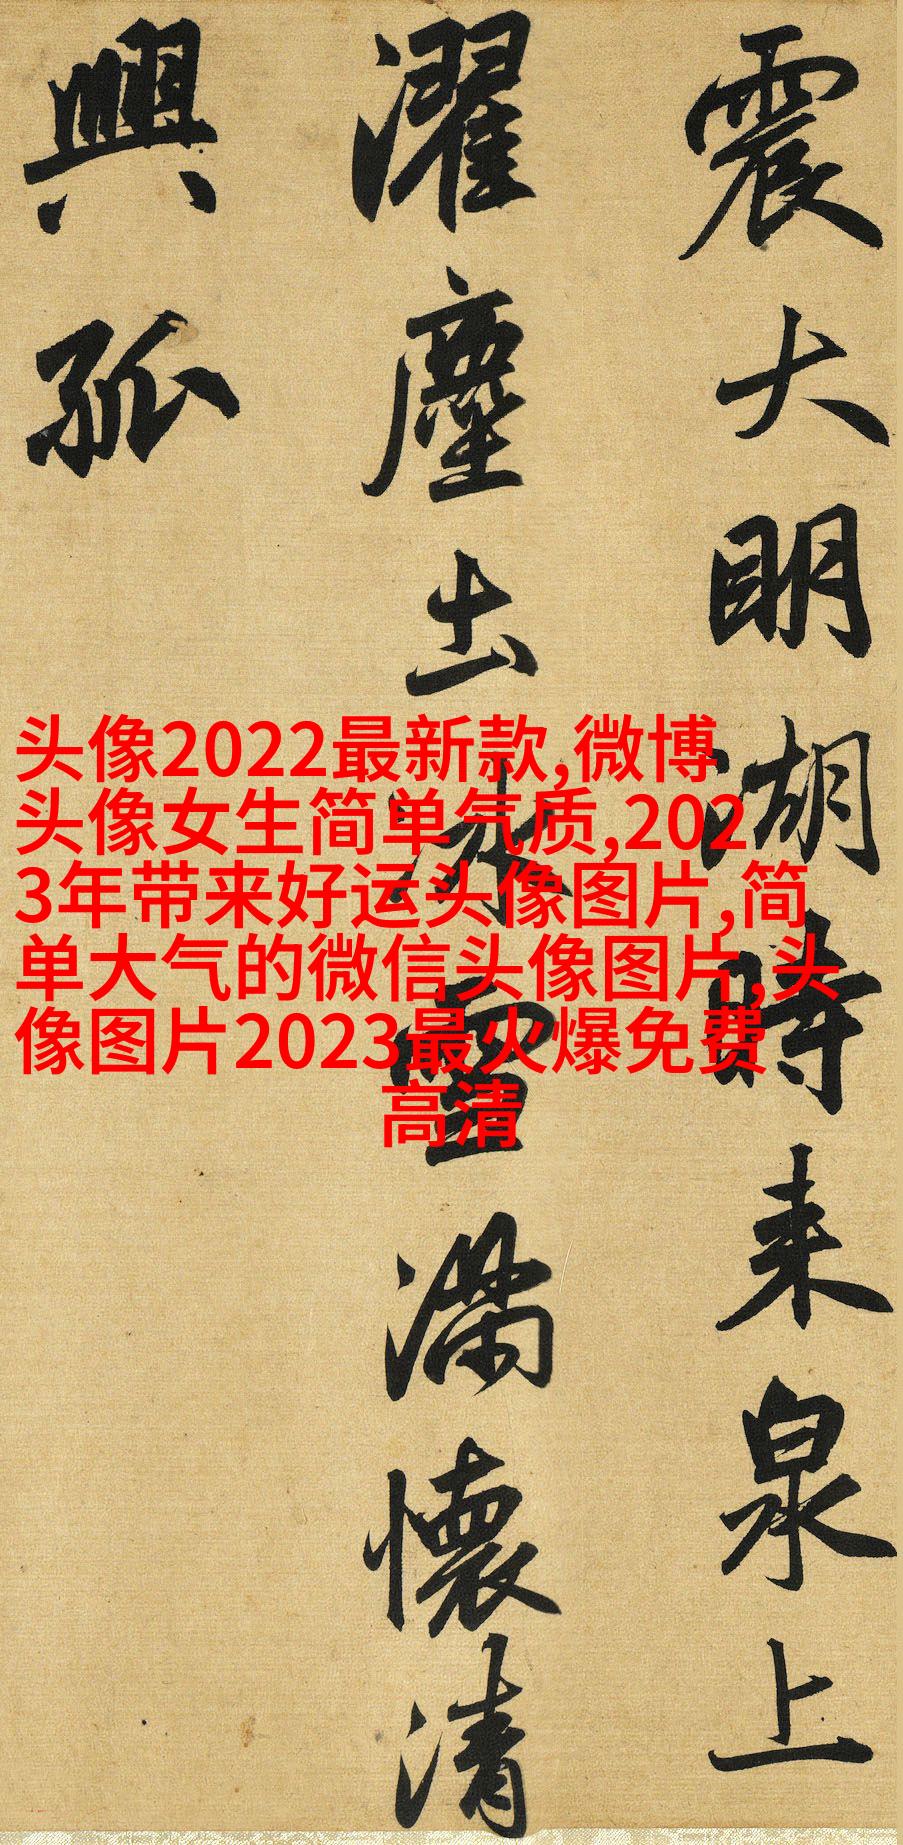 震大明湖時来泉上
濯塵土冰雪滿懷清
興孤
头像2022最新款,微博
头像女生简单气质,202
3年带来好运头像图片,简
单大气的微信头像图片,头
像图片2023最火爆免费
高清